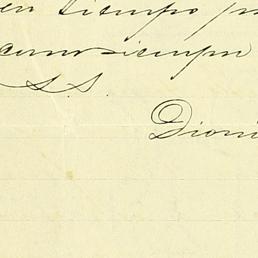 en tiempo
como siempre
S. S.
Dioni